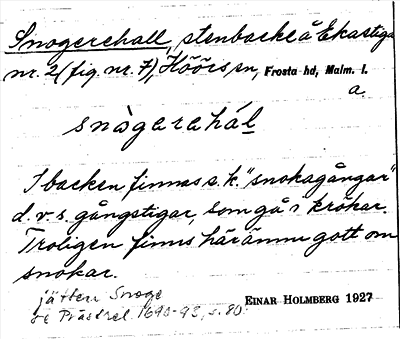 Snogerehall, stenbacke å Ekastiga
nr. 2 (fig. nr. 7), Höörs sn, Frosta hd, Malm. l.
a.
snògerehál
I backen finnas s.k. "snokagångar"
d.v.s. gångstigar, som gå i krökar.
Troligen finns här ännu gott om
snokar.
jätten Snoge
se Prästrel. 1690-93, s. 80.
EINAR HOLMBERG 1927